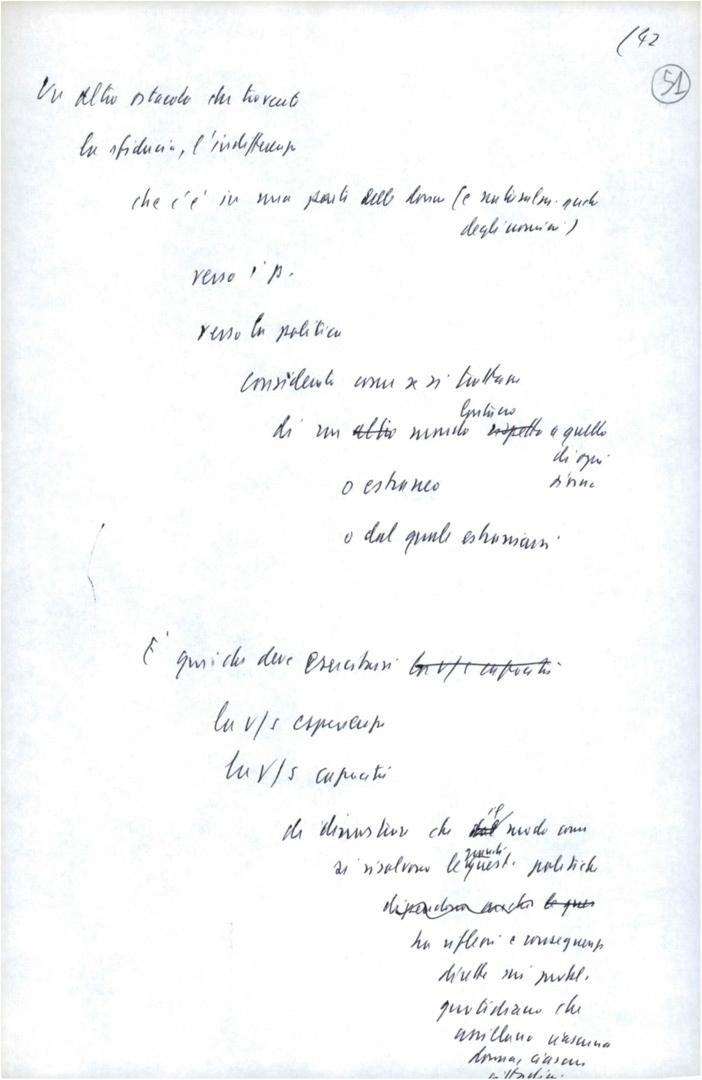 142
51
Un altro ostacolo che trovate
la sfiducia, l'indifferenza
che c'è in una parte delle donne (e naturalm. anche
degli uomini)
verso i p.
verso la politica
considerata come se si trattasse
lontano
di un altro mondo rispetto a quello
di ogni
donna
o estraneo
o dal quale estraniarsi
È qui che deve esercitarsi la v/s capacità
la v/s esperienza
la v/s capacità
di dimostrare che dal il modo come
si risolvono le grandi quest. politiche
dipendono anche le ques
ha riflessi e conseguenze
dirette sui probl.
quotidiano che
assillano ciascuna
donna, ciascun
cittadino